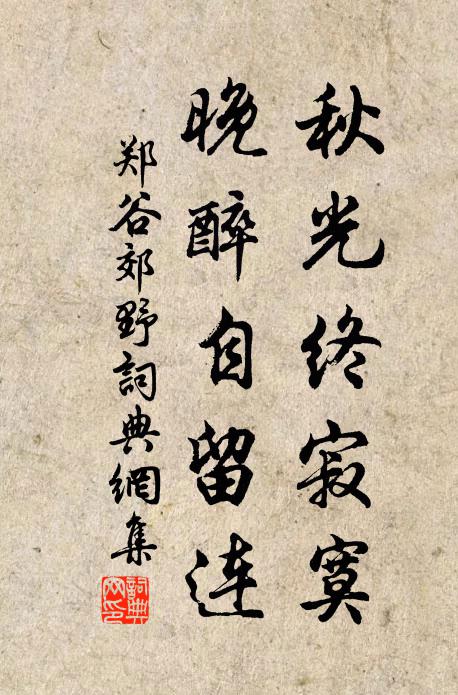 秋光终寂寞
晚醉自留连
郑谷郊野詞典網集
詞典網印